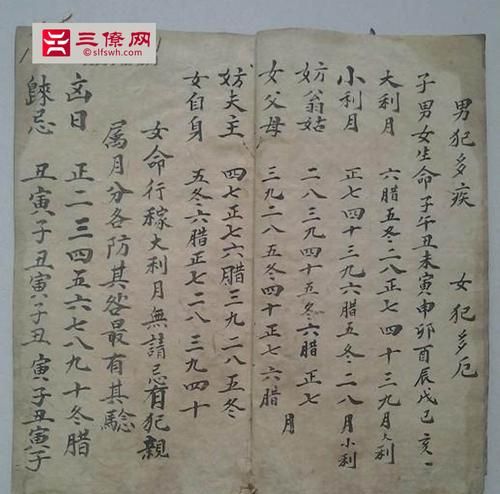 三僚网
slfswh.com
男犯多疾 女犯多厄
子男女生命子午丑未寅申卯酉辰戌巳亥
大利月 六腊五冬二八正七四十三九月大利
小利月 正七四十三九六腊五冬二八月小利
妨翁姑 二八三九四十五冬六腊正七
女父母 三九二八五冬四十正七六腊 月
妨夫主 四七正七六腊三九二八五冬
女自身 五冬六腊正七二八三九四十
女命行稼大利月無請忌有犯親
属月分各防其咎最有其騐
㐫日 正二三四五六七八九十冬腊
歸忌 丑寅子丑寅子丑寅子丑寅子